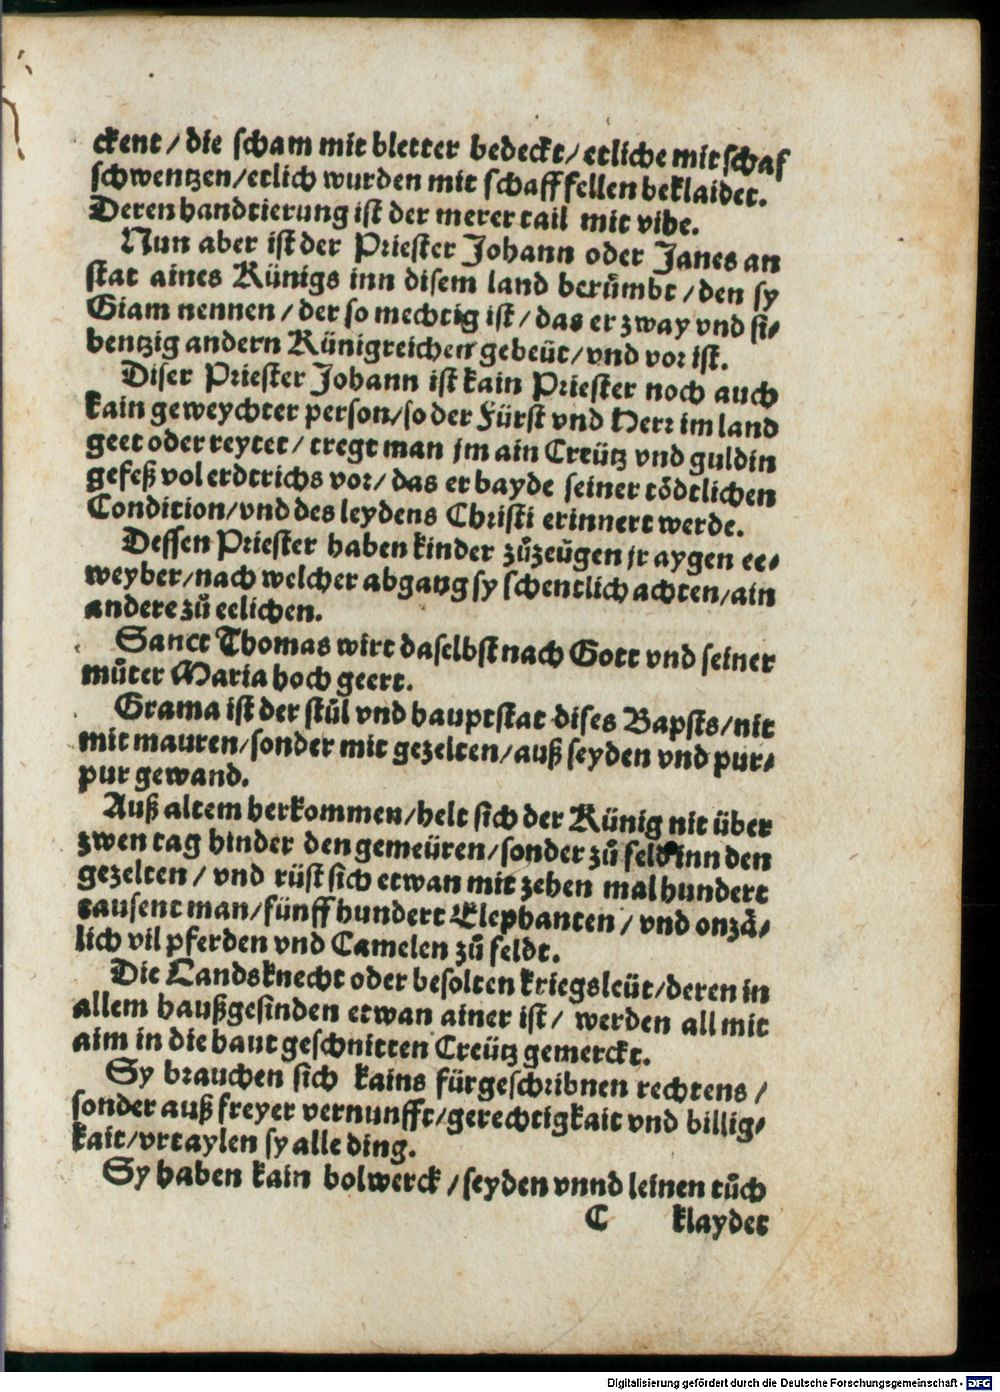 ckent / die scham mit bletter bedeckt / etliche mit schaf
schwentzen / etlich wurden mit schaff fellen beklaidet.
Deren handtierung ist der merer tail mit vihe.
Nun aber ist der Priester Johann oder Janes an
stat aines Künigs inn disem land berůmbt / den sy
Giam nennen / der so mechtig ist / das er zway vnd si⸗
bentzig andern Künigreichen gebeüt / vnd vor ist.
Diser Priester Johann ist kain Priester noch auch
kain geweychter person / so der Fürst vnd Herr im land
geet oder reytet / tregt man jm ain Creütz vnd guldin
gefeß vol erdtrichs vor / das er bayde seiner tödtlichen
Condition / vnd des leydens Christi erinnert werde.
Dessen Priester haben kinder zůzeügen jr aygen ee⸗
weyber / nach welcher abgang sy schentlich achten / ain
andere zů eelichen.
Sanct Thomas wirt daselbst nach Gott vnd seiner
můter Maria hoch geert.
Grama ist der stůl vnd hauptstat dises Bapsts / nit
mit mauren / sonder mit gezelten / auß seyden vnd pur⸗
pur gewand.
Auß altem herkommen / helt sich der Künig nit über
zwen tag hinder den gemeüren / sonder zů feld inn den
gezelten / vnd rüst sich etwan mit zehen mal hundert
tausent man / fünff hundert Elephanten / vnd onzä⸗
lich vil pferden vnd Camelen zů feldt.
Die Landsknecht oder besolten kriegsleüt / deren in
allem haußgesinden etwan ainer ist / werden all mit
aim in die haut geschnitten Creütz gemerckt.
Sy brauchen sich kains fürgeschribnen rechtens /
sonder auß freyer vernunfft / gerechtigkait vnd billig⸗
kait / vrtaylen sy alle ding.
Sy haben kain bolwerck / seyden vnnd leinen tůch
C klaydet
Digitalisierung gefördert durch die Deutsche Forschungsgemeinschaft - DFG